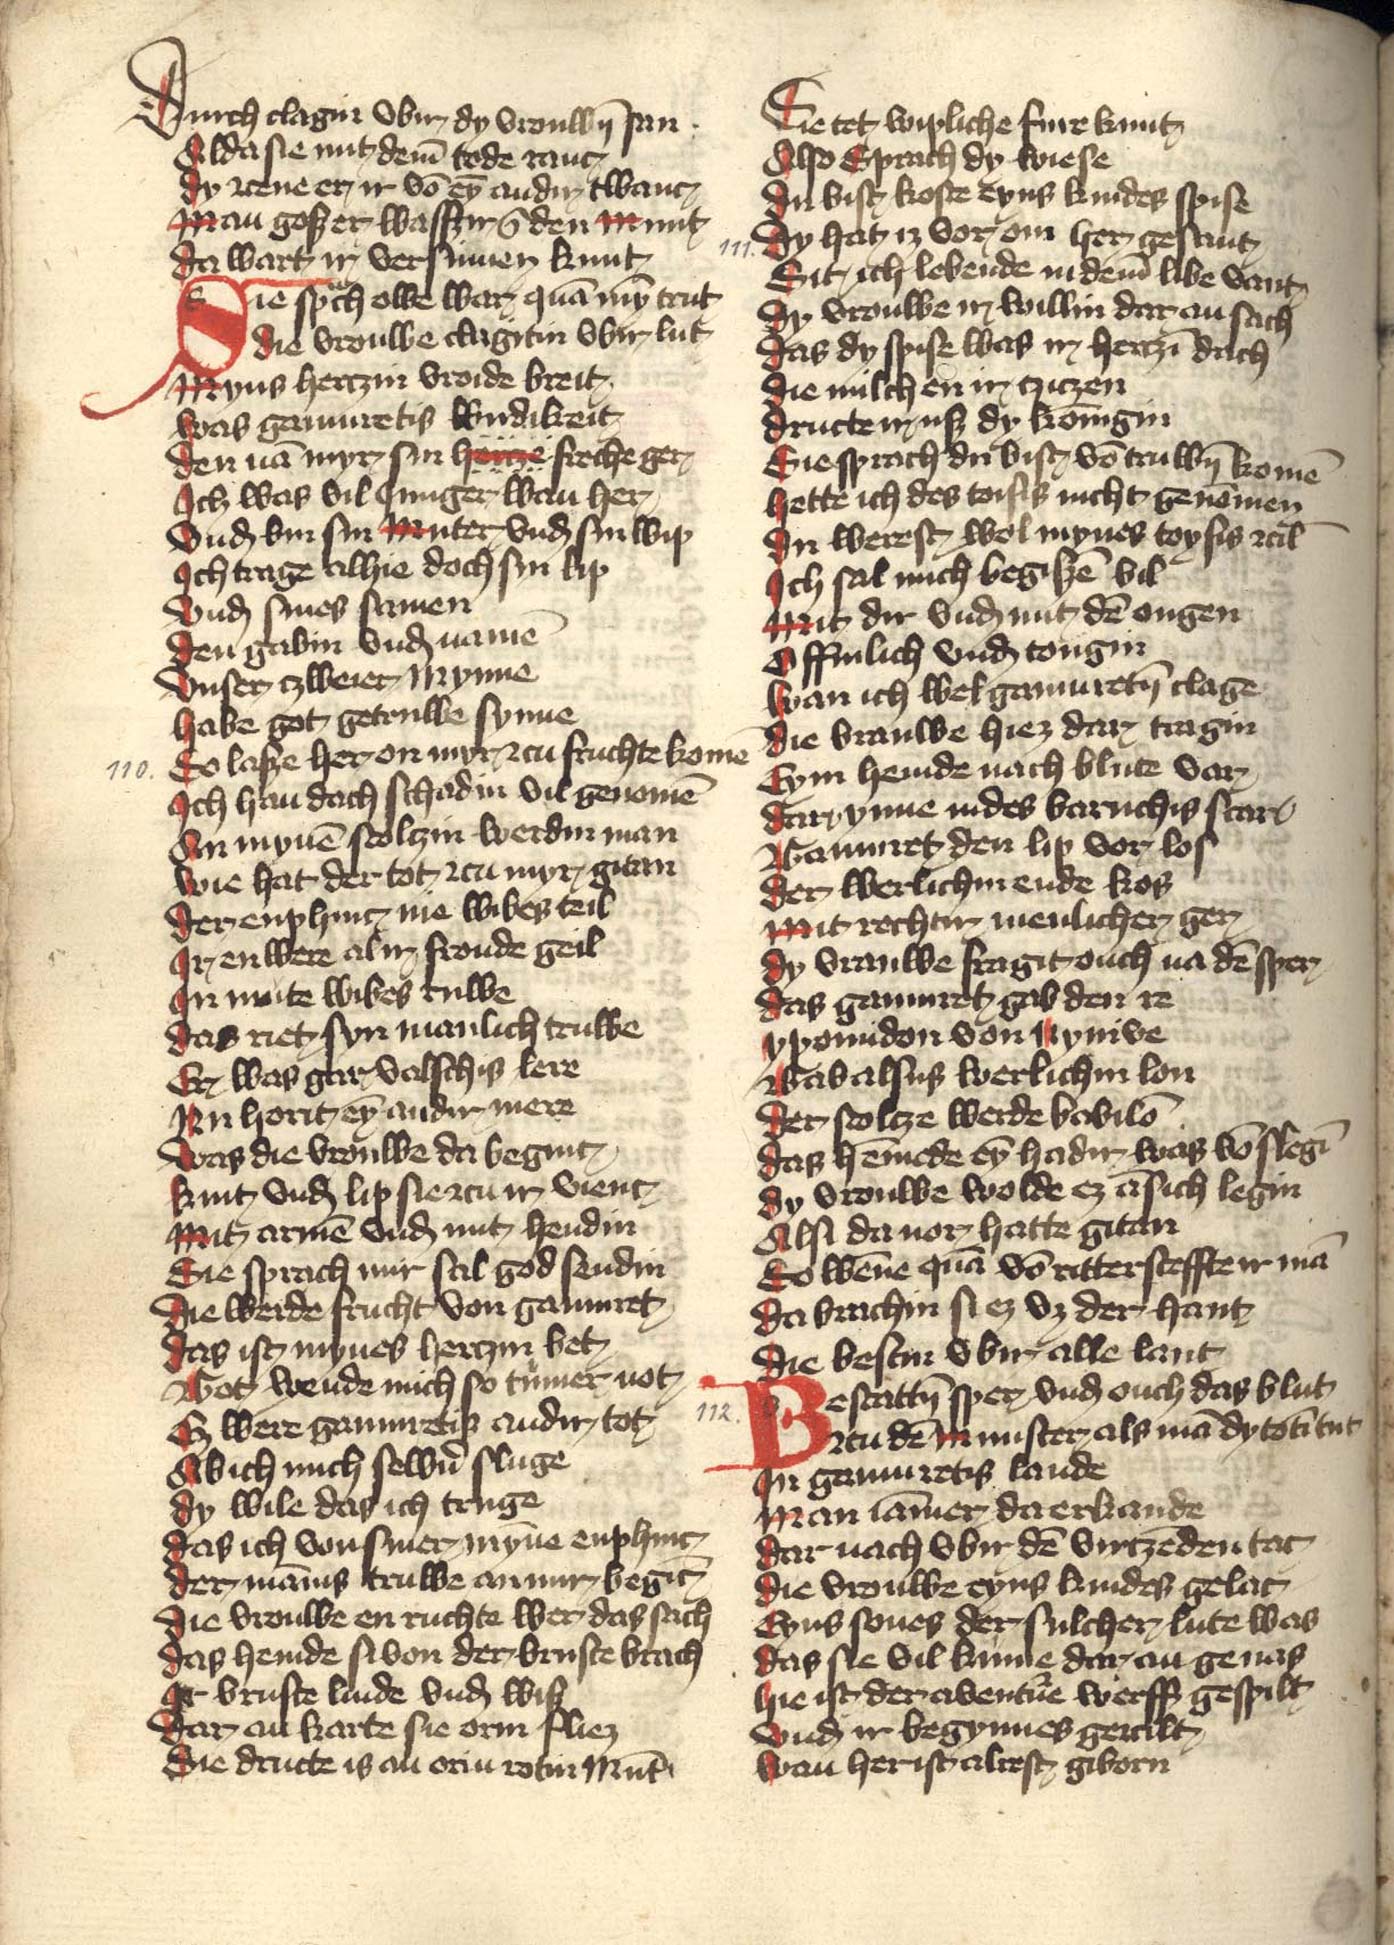 Durch clagin vbir dy vrouwī san
Aldа sie mit dem̄ tode ranc
dy zcene er ir vō eȳ andir twanc
Man gosz er wasszir ī den Munt
da wart ir versinnen kunt
Sie spͣch owe war quā mȳ trut
die vrouwe clagitin vbir lut
Myns hertzin vroide breit
was gamuretis wirdikeit
den nā myr sin hertze freche ger
Ich was vil Junger wan her
vnd bin sin Muter vnd sin wip
Ich trage alhie doch sin lip
vnd sines samen
den gabin vnd namē
vnser zweier Mynne
habe got getruwe synne
110. So lasze her on myr zcu fruchte komē
Ich han doch schadin vil genomē
An mynē stoltzin werdin man
wie hat der tot zcu myr gitan
der enphinc nie wibes teil
Ir en were al ir froude geil
In mute wibes ruwe
das riet syn manlich truwe
Er was gar valschis lere
Nu horit eȳ andir mere
was die vrouwe da beginc
kint vnd lip sie zcu ir vienc
Mit armē vnd mit hendin
Sie sprach mir sal god sendin
die werde frucht von gamuret
das ist mynes hertzin bet
Got wende mich so tūmer not
Ez were gamuretis andir tot
Ab ich mich selwir sluge
dy wile das ich truge
das ich von siner myne enphinc
der mānis truwe an mir begic̄
die vrouwe en ruchte wer das sach
das hemde si von der bruste brach
Ir bruste linde vnd wisz
dar an karte sie orin fliez
Sie dructe is an orin rotin Munt
Sie tet wipliche fure kunt
Also Sprach dy wiese
du bist koste eyns kindes spise
111. dy hat iz vor om her gesant
Sit ich lebende in dem̄ libe vant
dy vrouwe ir willin dar an sach
das dy spise was ir hertzī dach
die milch en ir tzitzen
dructe ir usz dy konīgin
Sie sprach du bist vō truwī komē
hette ich des toifis nicht genomen
du werest wol mynes toyfis zcil
Ich sal mich begiszē vil
Mit dir vnd mit dē ougen
Offinlich vnd tougin
wan ich wel gamuretī clage
die vrauwe hiez dar tragin
Eyin hemde nach blute var
dar ynne in des baruchis scar
Gamuret den lip vor los
der werlichin ende kos
Mit rechtir menlicher ger
dy vrauwe fragit ouch na dē sper
das gamuret gab den re
ypomidon von Nynive
Gab alsus werlichin lon
der stoltze werde babilō
das hēmede eȳ hadir was vō slegī
dy vrouwe wolde ez ā sich legin
Alsi da vor hatte gitan
So wēne quā vō ritterscheffte ir mā
da brachin si ez vz der hant
die bestin vbir alle lant
112. Bestattī sper vnd ouch das blut
zcu dē Munster als mā dy totī tut
In gamuretis lande
Man iāmer da erkande
dar nach vbir dē virtzēden tac
die vrouwe eyns kindes gelac
Eyns sones der sulcher lute was
das sie vil kūme dar an genas
hie ist der aventūe werff gespilt
vnd ir begynnes gezcilt
wan her ist alrest giborn